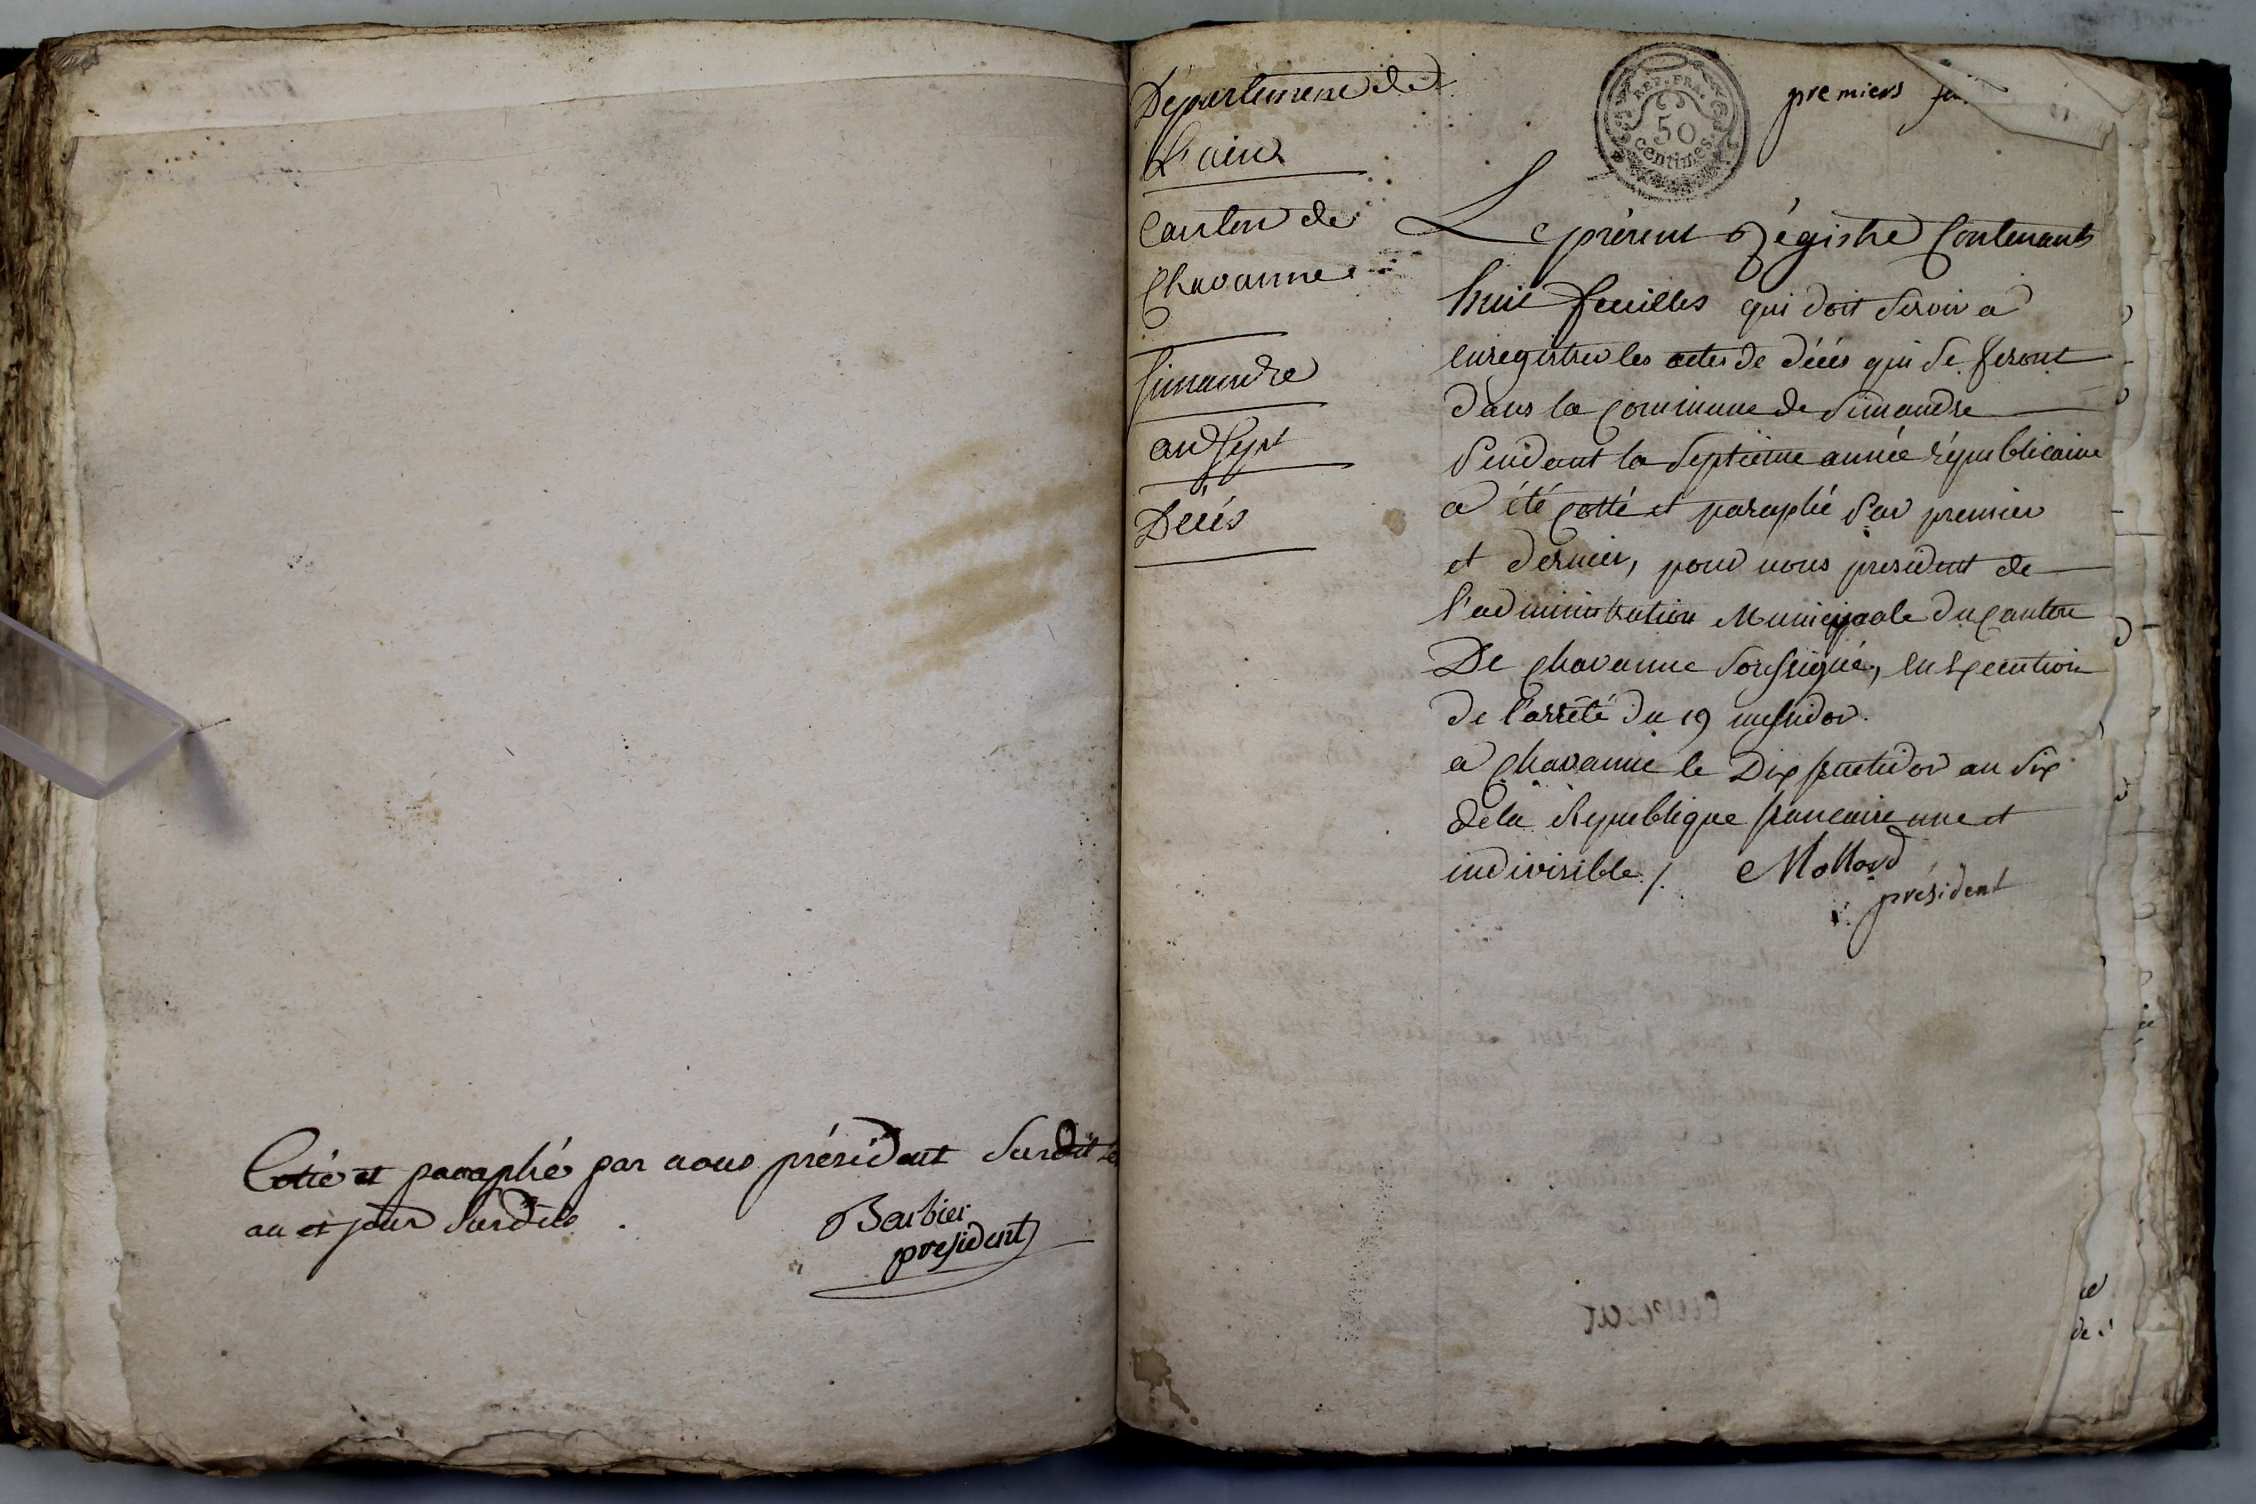 Cotté et paraphé par nous président susdit
an et jour susdits.
Barbier
president
Département de
L'ain
Canton de
Chavanne
Simandre
an sept
Décés
REP. FRA.
50
centimes
premiers
Le présent Régistre Contenant
huit feuilles qui doit servir a
enregistrer les actes de décés qui se feront
dans la commune de Simandre
Pendant la Septieme année républicaine
a été cotté et paraphé par premier
et dernier, pour nous president de
l'administration Municipale du Canton
De Chavanne Soussigné, en Execution
de l'arrêté du 19 messidor.
a Chavanne le Dix fructidor an Six
de la Republique francaise une et
indivisible /. Mollard
président